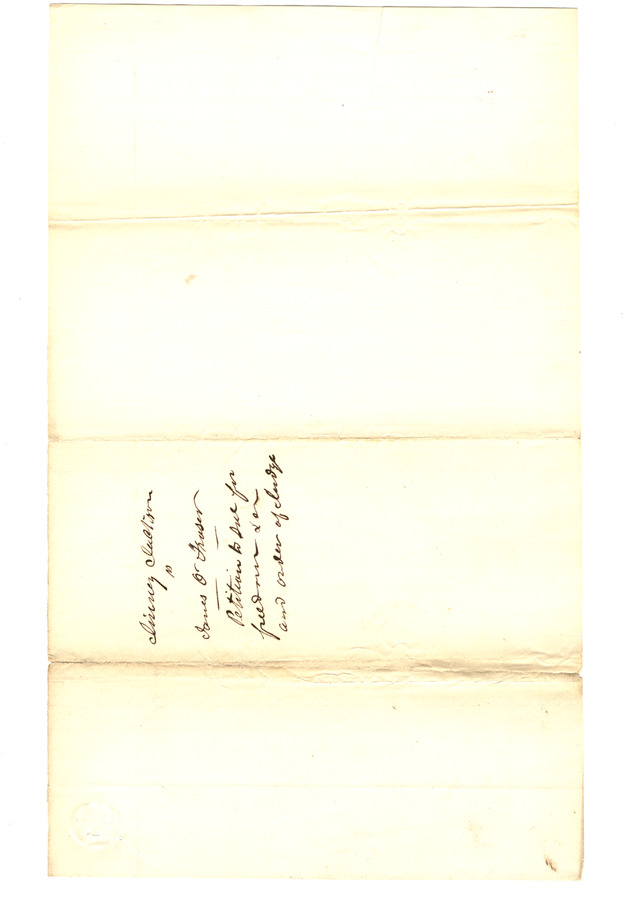 Jinney Jackson
vs
James O Fraser
Petition to sue for
freedom &c
and order of Judge